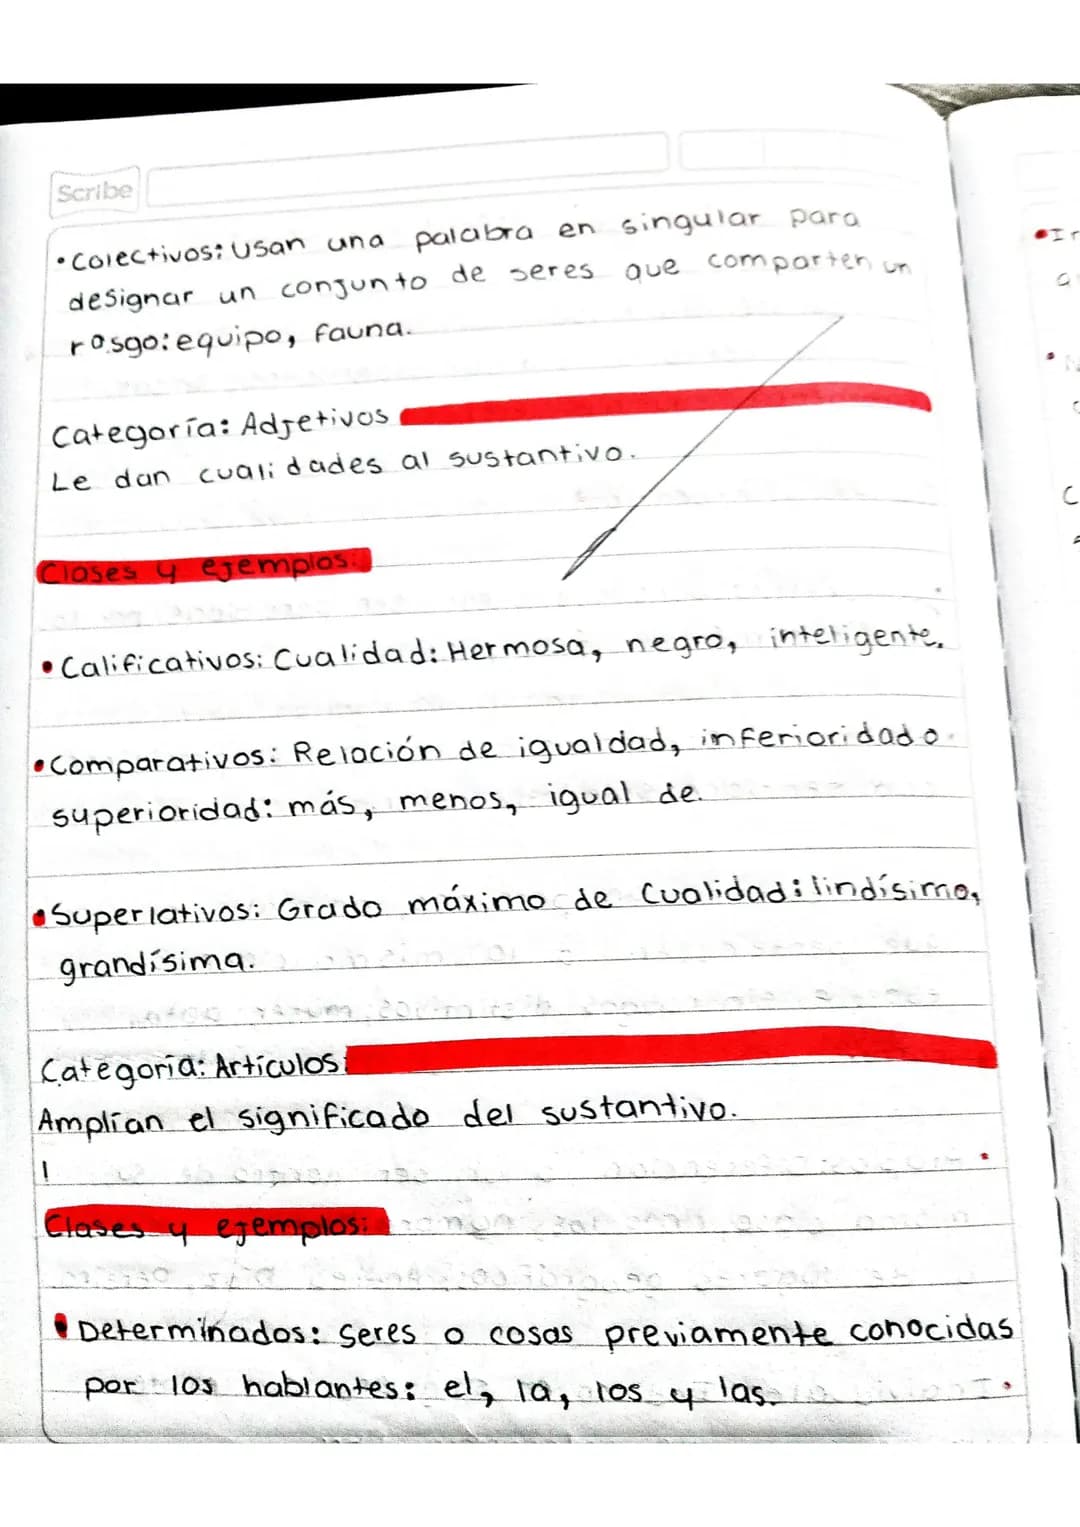 Scribe
• Colectivos: Usan una palabra en singular para
designar un conjunto de seres que comparten un
rasgo: equipo, fauna.
Categoría: Adjetivos
Le dan cualidades al sustantivo.
Clases y ejemplos:
• Calificativos: Cualidad: Hermosa, negro, inteligente.
• Comparativos: Relación de igualdad, inferioridad o
superioridad: más, menos, igual de.
• Superlativos: Grado máximo de Cualidad: lindísimo,
grandísima.
Categoría: Artículos:
Amplían el significado del sustantivo.
Clases y ejemplos:
• Determinados: seres o cosas previamente conocidas
por los hablantes: el, la, los y las.